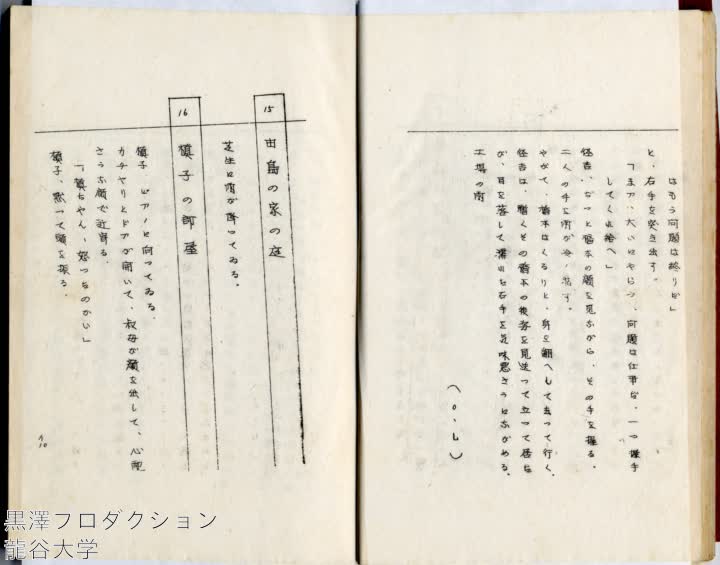 はもう問題は終りだ」
と、右手を突き出す。
「まア、大いにやらう、問題は仕事だ、一つ握手
してくれ給へ」
怪吉、ぢつと橋本の顔を見ながら、その手を握る。
二人の手を雨が
やがて、橋本はくるりと、身を翻へして去って行く。
怪吉は、暫くその橋本の後姿を見送って立って居た
が、目を落して濡れた右手を気味悪さうにながめる。
工場の雨
(O・L)
15
田島の家の庭
芝生に雨が降ってゐる。
16
槙子の部屋
槙子、ピアノに向ってゐる。
ガチヤリとドアが開いて、叔母が顔を出して、心配
さうな顔で近寄る。
「槙ちやん、怒つたのかい」
槙子、黙って頭を振る。
黒澤プロダクション
龍谷大学